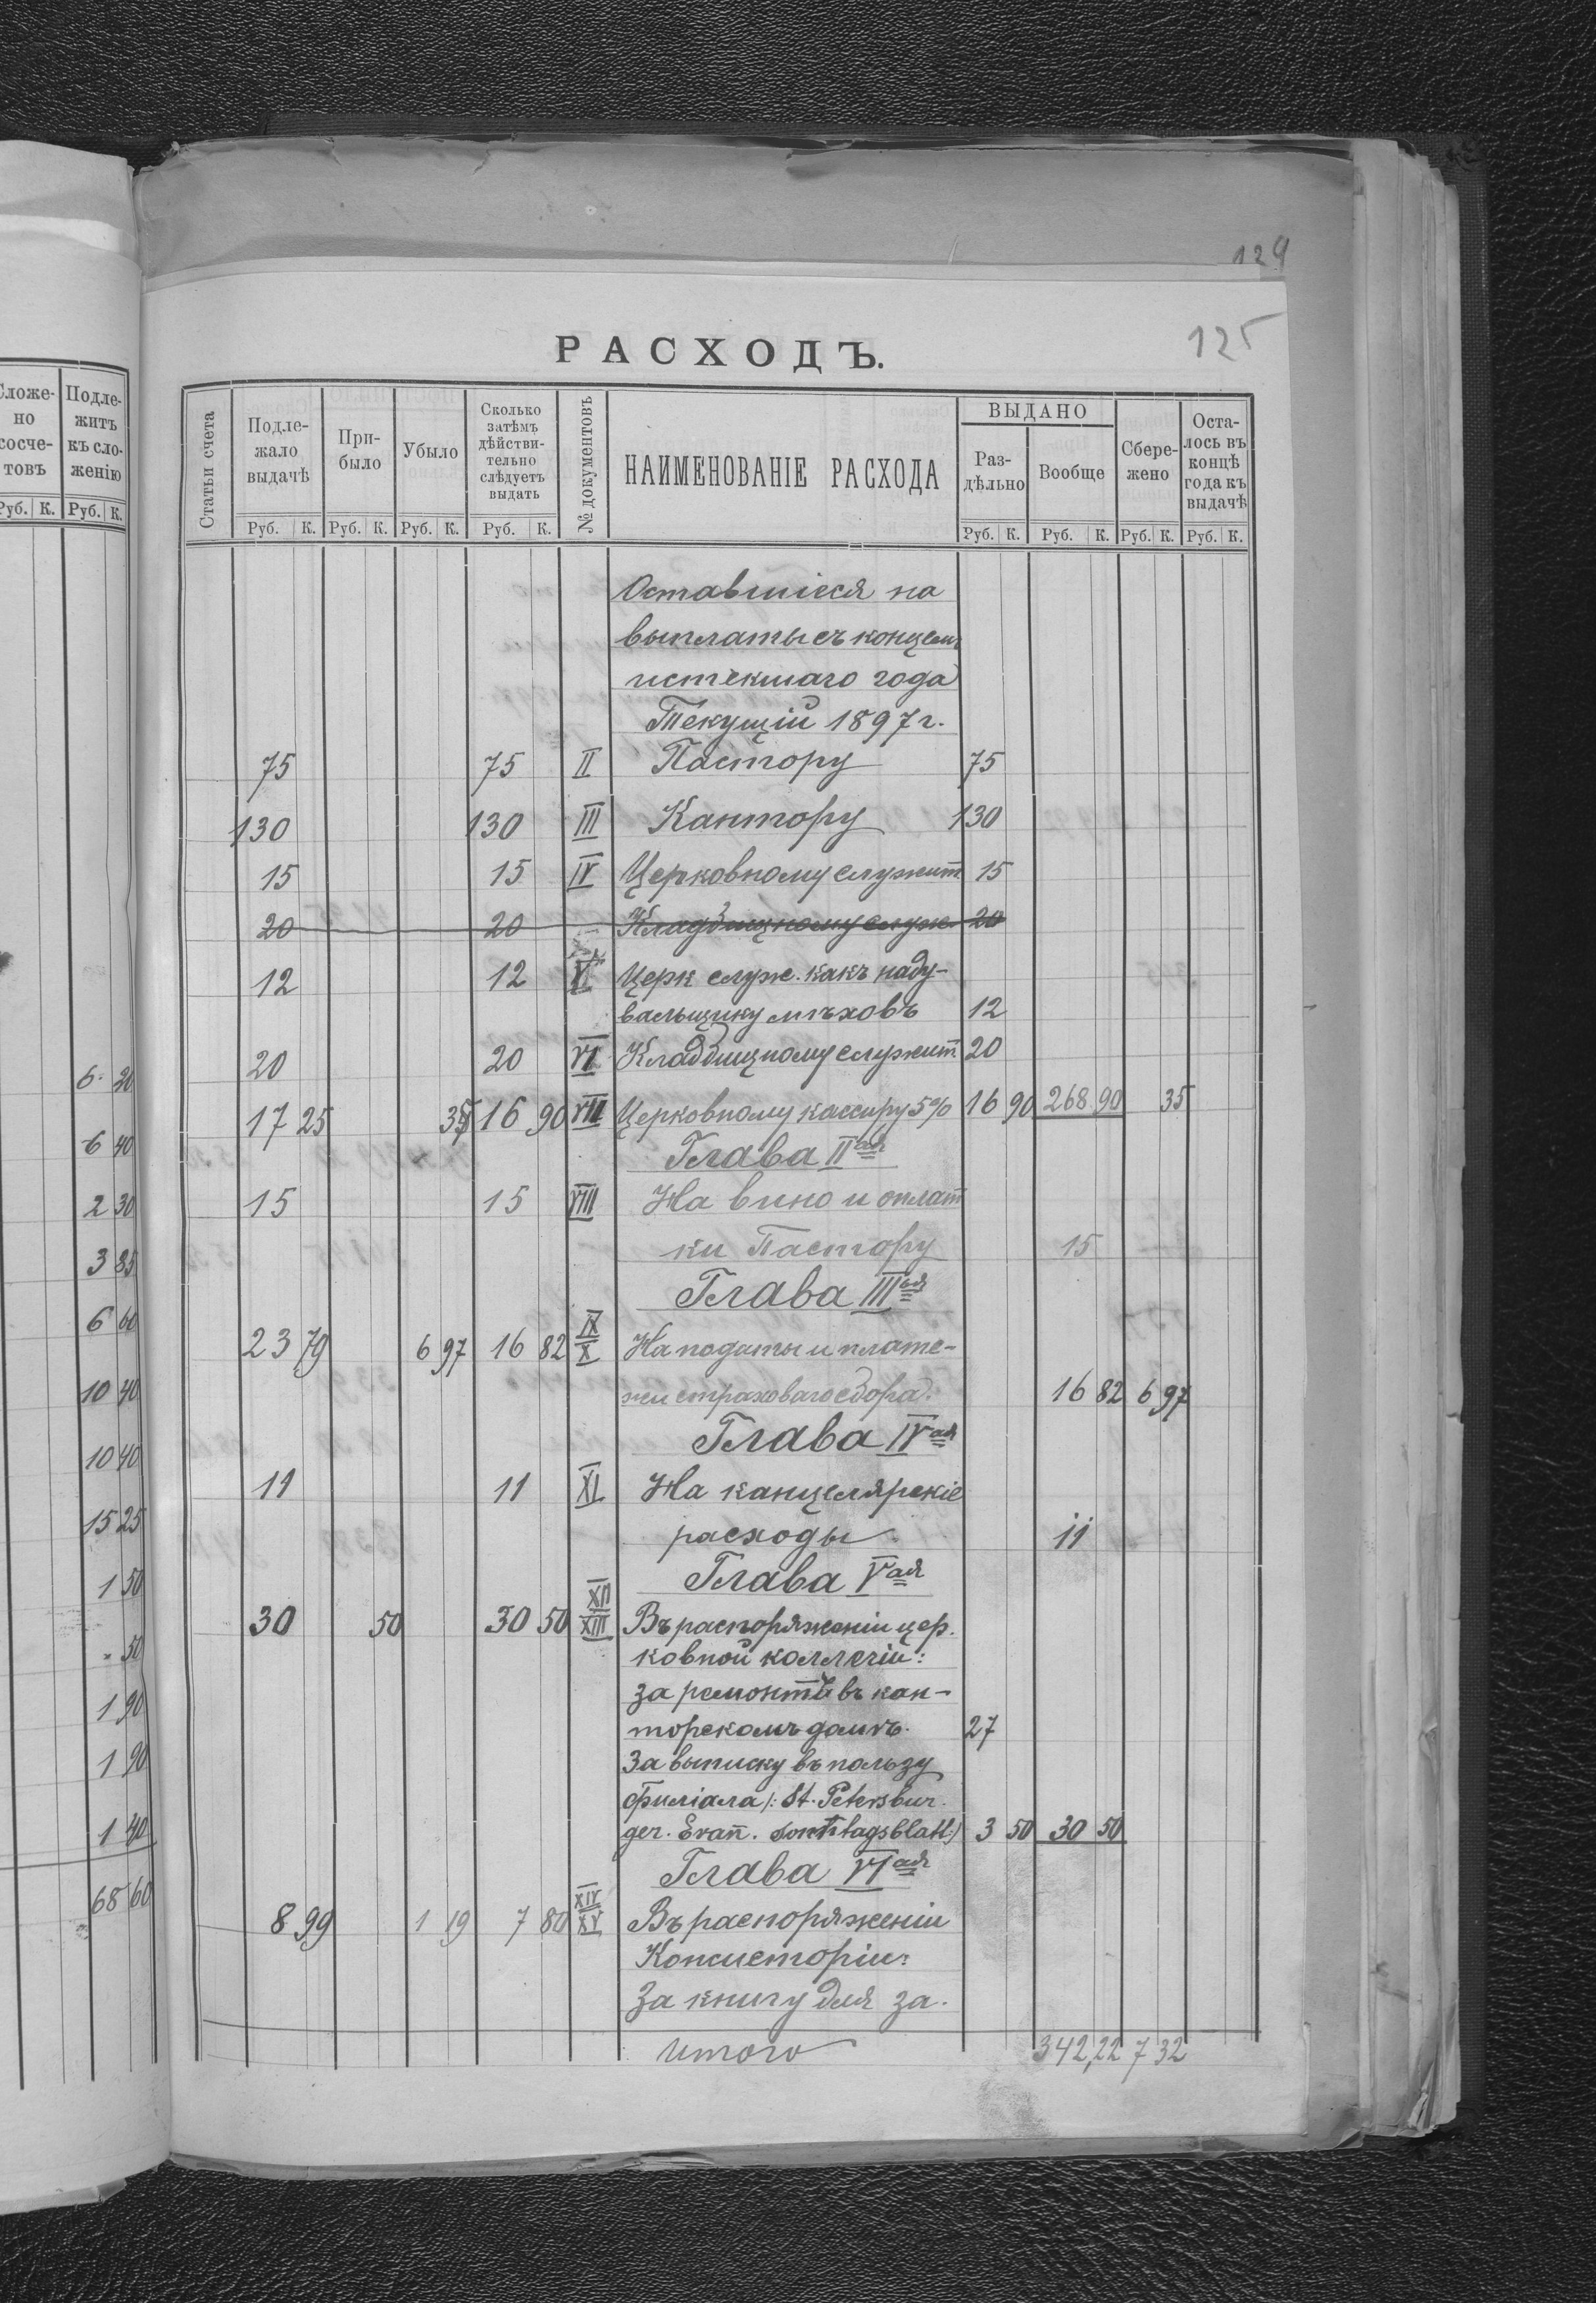 124
125
РАСХОДЪ.
Сложено сосчетовъ
Подлежитъ къ сложенію
Руб. К. Руб. К.
Статьи счета
Подлежало выдачѣ
Прибыло
Убыло
Сколько затѣмъ дѣйствительно слѣдуетъ выдать
№ документовъ
НАИМЕНОВАНІЕ РАСХОДА
ВЫДАНО
Раздѣльно
Вообще
Сбережено
Осталось въ концѣ года къ выдачѣ
Руб. К. Руб. К. Руб. К. Руб. К. Руб. К. Руб. К. Руб. К. Руб. К.
Оставшіеся на
выплаты съ концемъ
истекшаго года
Текущій 1897 г.
75 75 II Пастору 75
130 130 III Кантору 130
15 15 IV Церковному служит 15
20 20 Кладбищному служ. 20
12 12 V Церк служ. какъ наду-
вальщику мѣховъ 12
20 20 VI Кладбищному служит 20
17 25 35 16 90 VII Церковному кассиру 5% 16 90 268 90 35
Глава IIая
15 15 VIII На вино и оплат
ки Пастору 15
Глава IIIья
23 79 6 97 16 82 IX X На подати и плате-
жи страховаго сбора. 16 82 6 97
Глава IVая
11 11 XI На канцелярскіе
расходы 11
Глава Vая
30 50 30 50 XII XIII Въ распоряженіи цер.
ковной коллегіи:
за ремонтъ въ кан-
торскомъ домѣ. 27
За выписку въ пользу
филіала /: St. Petersbur.
ger. Evan̄. Sonntagsblatt:/ 3 50 30 50
Глава VIая
8 99 1 19 7 80 XIV XV Въ распоряженіи
Консисторіи:
За книгу для за.
Итого 342,22 7 32
6. 20
6 40
2 30
3 85
6 60
10 40
10 40
15 25
1 50
" 50
1 90
1 90
1 40
68 60